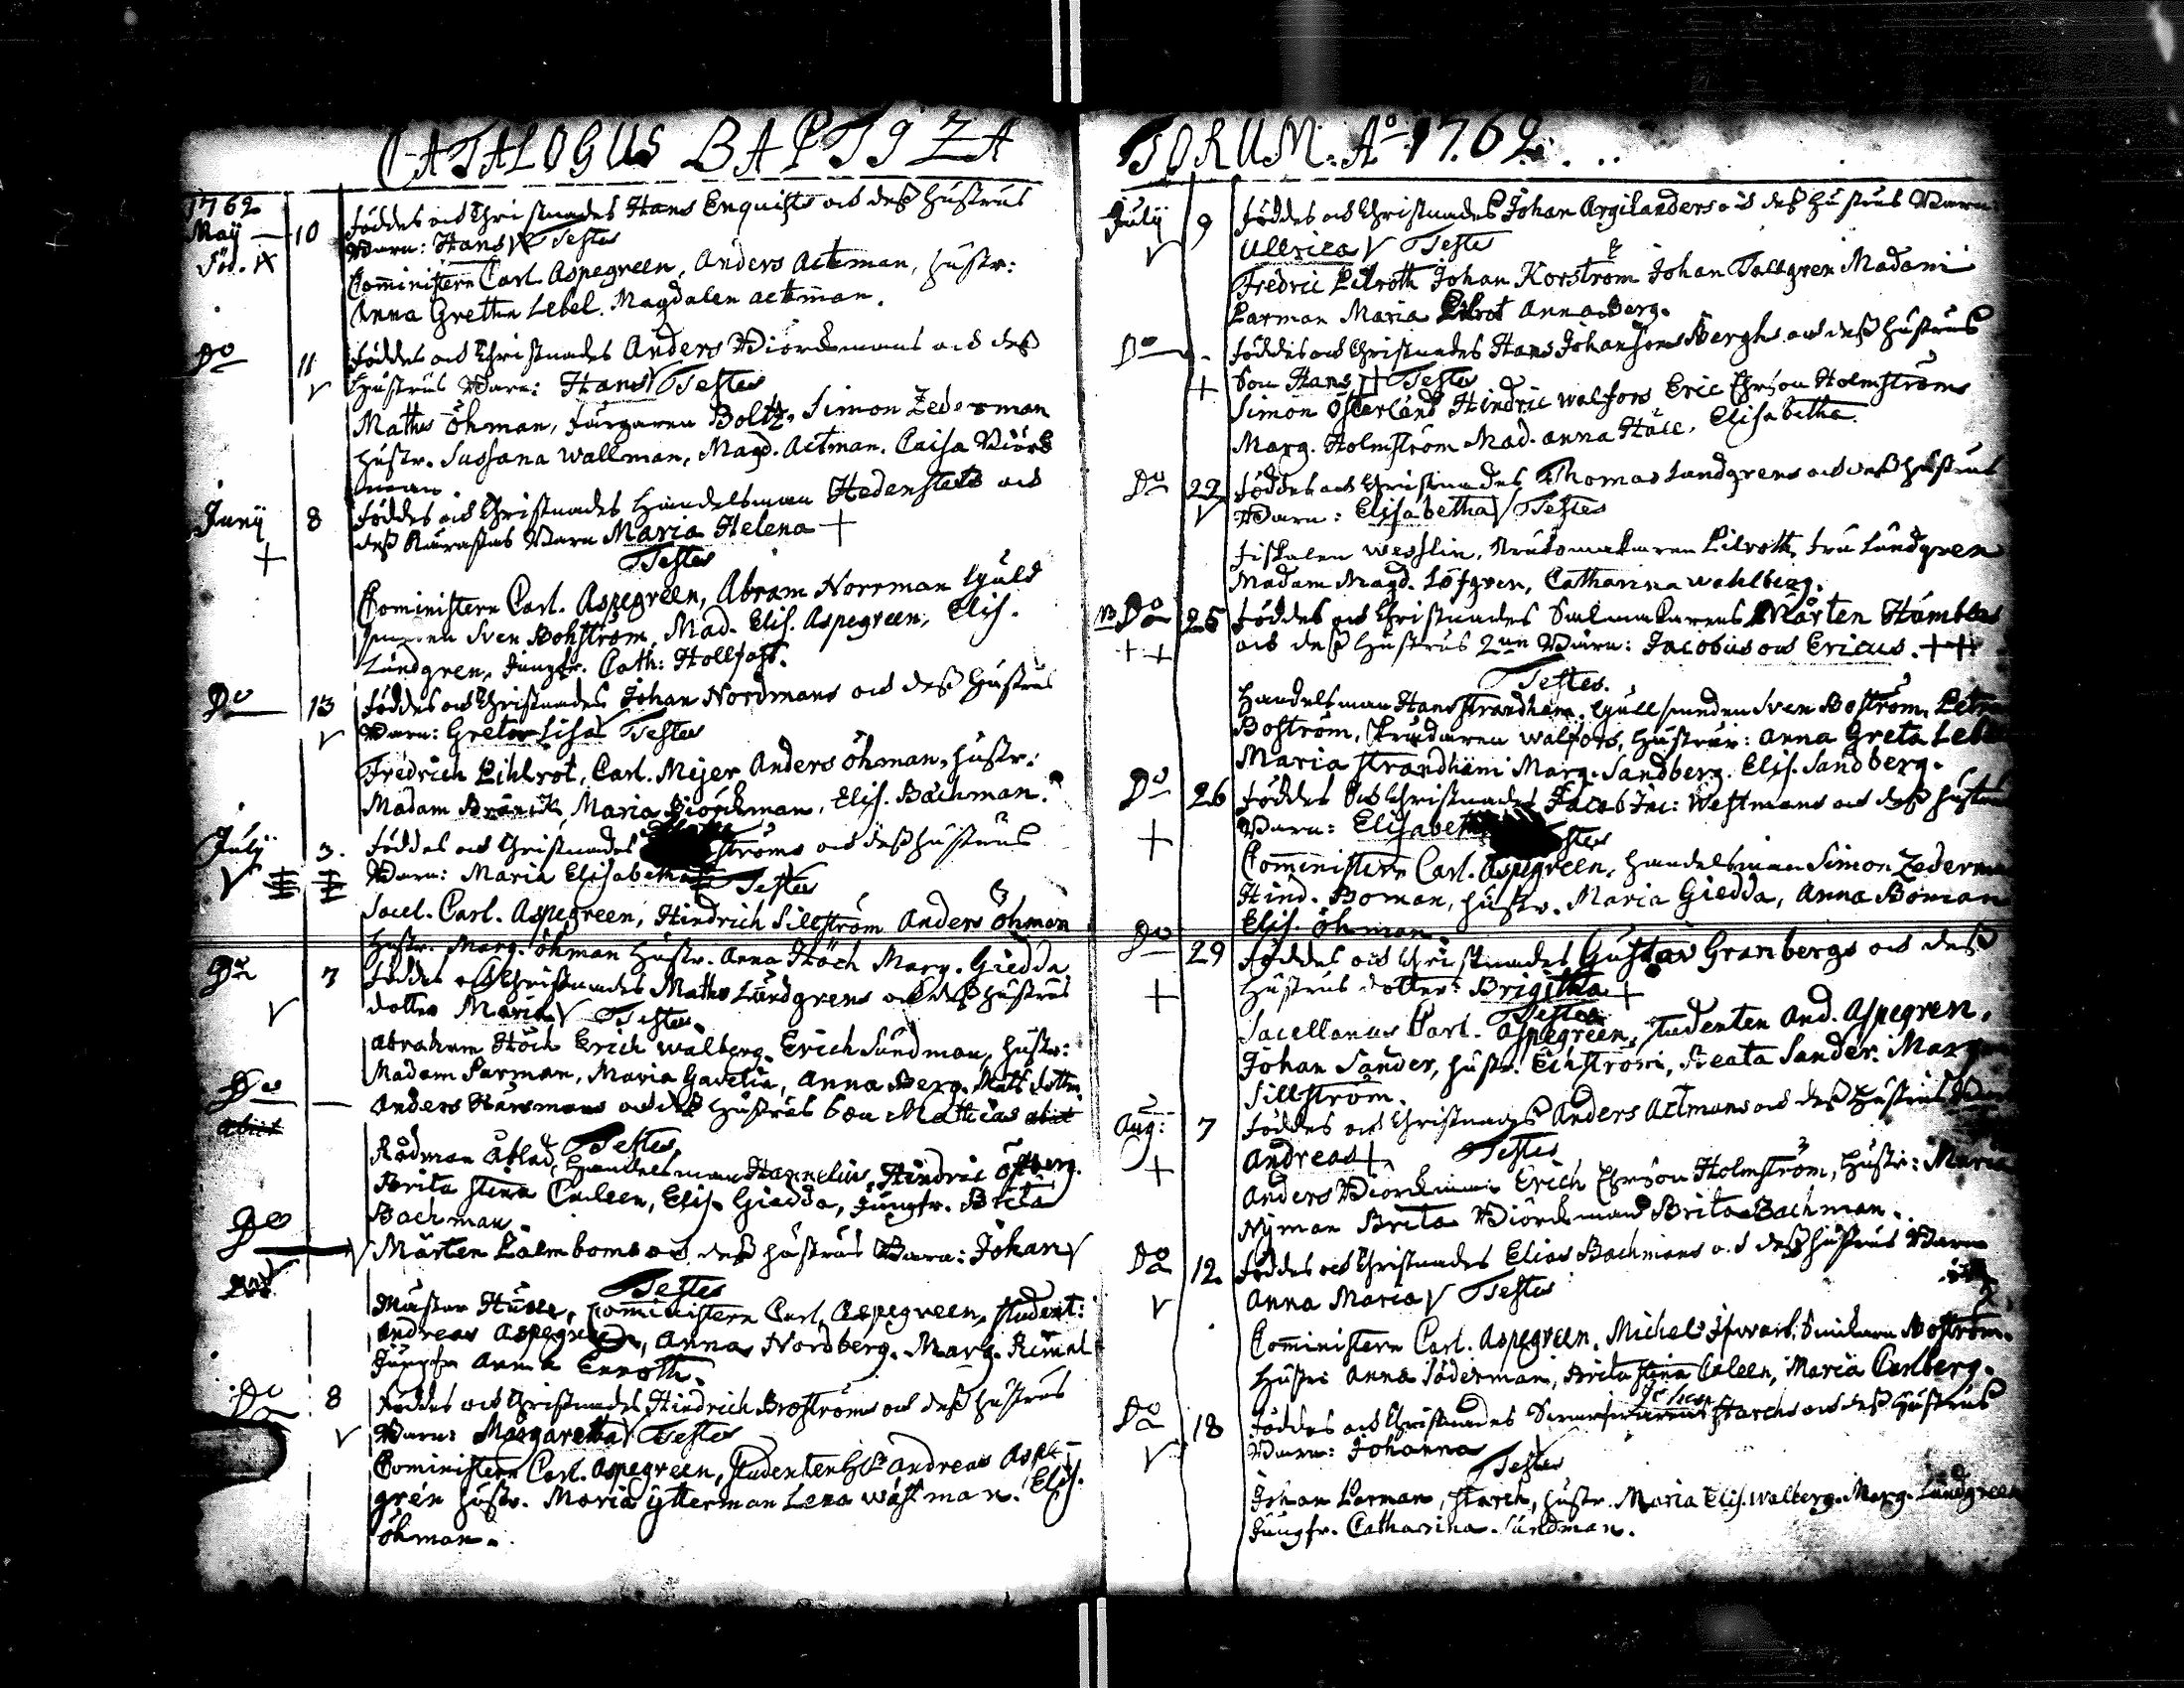 CATALOGUS BAPTIZA
1762
Maij 10 föddes och Christnades Hans Enquists och dess hustrus
Barn: Hans Testes
Comministern Carl Aspegreen, Anders Actman, hustr:
Anna Gretha Lebel. Magdalen actman.
Do 11 föddes och Christnades Anders Biörckmans och dess
hustrus Barn: Hans Testes
Mathes Öhman, färgaren Boltz, Simon Zederman
hustr. Sussana Wallman, Magd. Actman. Caisa Biörck
man
Junij 8 föddes och Christnades handelsman Hedensteds och
dess Kärastas Barn Maria Helena +
Testes
Cominstern Carl. Aspegreen, Abram Norrman Guld
smeden Sven Bohström, Mad. Elis. Aspegreen, Elis.
Lundgren, Jungfr. Cath: Hollfast.
Do 13 föddes och Christnades Johan Nordmans och dess hustrus
Barn: Greta Lisa Testes
Fredrich Pihlrot, Carl. Meijer Anders öhman, hustr:
Madam Maria Biörckman, Elis. Bachman.
Julij 3. föddes och Christnades ströms och dess hustrus
Barn: Maria Elisabetha Testes
Sacel. Carl. Aspegreen, Hindrich Sillström Anders Öhman
hustr. Marg. öhman hustr. Anna Höck Marg. Giedda
Do 7 föddes och Christnades Maths Lundgrens och dess hustrus
dotter Maria Testes.
Abraham Höck Erich Walberg. Erich Sundman, hustr:
Madam Parman, Maria Gavelia, Anna Berg.
Do Anders och dess hustrus Son Matthias
Testes
Rådman handelsman Hannelius, Hindric Östberg.
Brita Stina Caleen, Elis. Giedda, Jungfr. Brita
Bachman.
Do Mårten Palmboms och dess hustrus Barn: Johan
Testes
Comministern Carl. Aspegreen, student:
Andreas Aspegreen, Anna Nordberg. Marg.
Jungfr Anna Enroth.
Do 8 föddes och Christnades Hindrich Broströms och dess hustrus
Barn: Margaretha Testes
Cominstern Carl. Aspegreen, studenten Hr Andreas Aspe-
grén hustr. Maria ytterman Lena wästman. Elis.
öhman.
TORUM: Ao 1762. . .
Julij 9 föddes och Christnades Johan Argilanders och dess hustrus Barn:
Ullrica Testes
Fredric Pilroth Johan Korström Johan Tallgren Madam
Parman Maria Pilrot Anna Berg.
Do föddes och Christnades Hans Johansons Berghs och dess hustrus
Son Hans + Testes
Simon Österlund Hindric walfors Eric Ehrson Holmströms
Marg. Holmström Mad. anna Höck, Elisabetha
Do 22 föddes och Christnades Thomas Lundgrens och dess hustrus
Barn: Elisabetha Testes
fiskalen Wesslin, Krukomakaren Pilroth, fru Lundgren
Madam Magd. Löfgren, Catharina Wahlberg.
NB Do 25 föddes och Christnades Sadelmakarens Mårten
++ och dess hustrus 2ne Barn: Jacobus och Ericus. ++
Testes.
Handelsman Hans Strandhem, Gullsmeden Sven Boström,
Boström, Skrudaren Walfors, hustrur: Anna Greta
Maria strandhem Marg. Sandberg. Elis. Sandberg.
Do 26 föddes och Christnades Jacob Jac: Westmans och dess
+ Barn:
Comministern Carl. Aspegreen, handelsman Simon
Hind. Boman, hustr. Maria Giedda, Anna Boman
Elis. öhman.
Do 29 föddes och Christnades Gustav Granbergs och dess
+ hustrus dotter: Brigitha +
Testes
Sacellanus Carl. Aspegreen, studenten And. Aspegren.
Johan Sander, hustr. Beata Sander.
Sillström.
Aug: 7 föddes och Christnades Anders Actmans och dess hustrus
+ Andreas + Testes
Anders Biörckman Erich Ehrson Holmström, hustr: Maria
Nyman Brita Biörckman Brita Bachman.
Do 12. föddes och Christnades Elias Bachmans och dess hustrus Barn
Anna Maria Testes
Comministern Carl. Aspegreen, Michel Boström.
hustr: Anna Söderman, Brita Stina Caleen, Maria Carlberg.
Do 18 föddes och Christnades Starcks och dess hustrus
Barn: Johanna
Testes
Johan Parman, Starck, hustr. Maria Elis. Walberg. Marg. Lundgreen
Jungfr. Catharina Sundman.